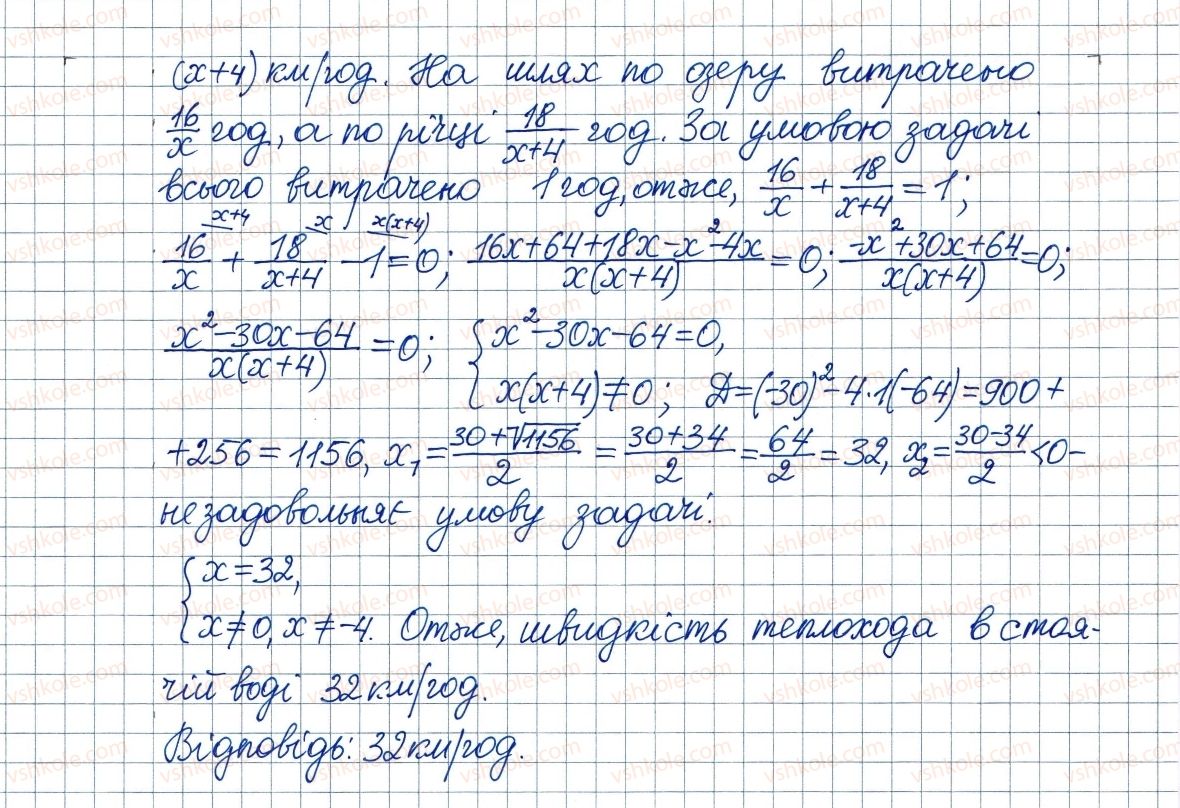 (x+4) км/год. На шлях по озеру витрачено
16/x год, а по річці 18/(x+4) год. За умовою задачі
всього витрачено 1 год, отже, 16/x + 18/(x+4) = 1;
16/x (x+4) + 18/(x+4) (x) − 1 (x(x+4)) = 0; (16x+64+18x−x²−4x)/(x(x+4)) = 0; (−x²+30x+64)/(x(x+4)) = 0;
(x²−30x−64)/(x(x+4)) = 0; { x²−30x−64=0,
x(x+4)≠0; Д=(−30)²−4·1(−64)=900+
+256=1156, x₁=(30+√1156)/2 = (30+34)/2 = 64/2 = 32, x₂=(30−34)/2 <0 −
не задовольняє умову задачі.
{ x=32,
x≠0, x≠−4. Отже, швидкість теплохода в стоя-
чій воді 32 км/год.
Відповідь: 32 км/год.
vshkole.com